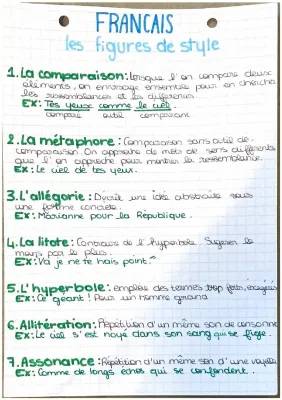 FRANCAIS
les figures de style
1. La comparaison: lorsque l'on compare deux
éléments, on envisage ensemble pour en cherche
les ressemblances et les différences
EX: Tes yeux comme le ciel.
comparé outil comparant
2. La métaphore: Comparaison sans outil de
comparaison. On rapproche de mots de sens différents
que l'on approche pour montrer la ressemblance.
EX: Le ciel de tes yeux.
3. L'allégorie: Décrit une idée abstraite sous
une forme concrète.
EX: Marianne pour la République.
4. La litote: Contraire de l'hyperbole. Suggérer le
moins par le plus.
EX: Va je ne te hais point.
5. L'hyperbole: emploie des termes trop forts, exagérés
EX: Ce géant! Pour un homme grand
6. Allitération: Répétition d'un même son de consonne
EX: Le ciel s'est noyé dans son sang qui se fige.
7. Assonance: Répétition d'un même son d'une voyelle
EX: Comme de longs échos qui se confondent...